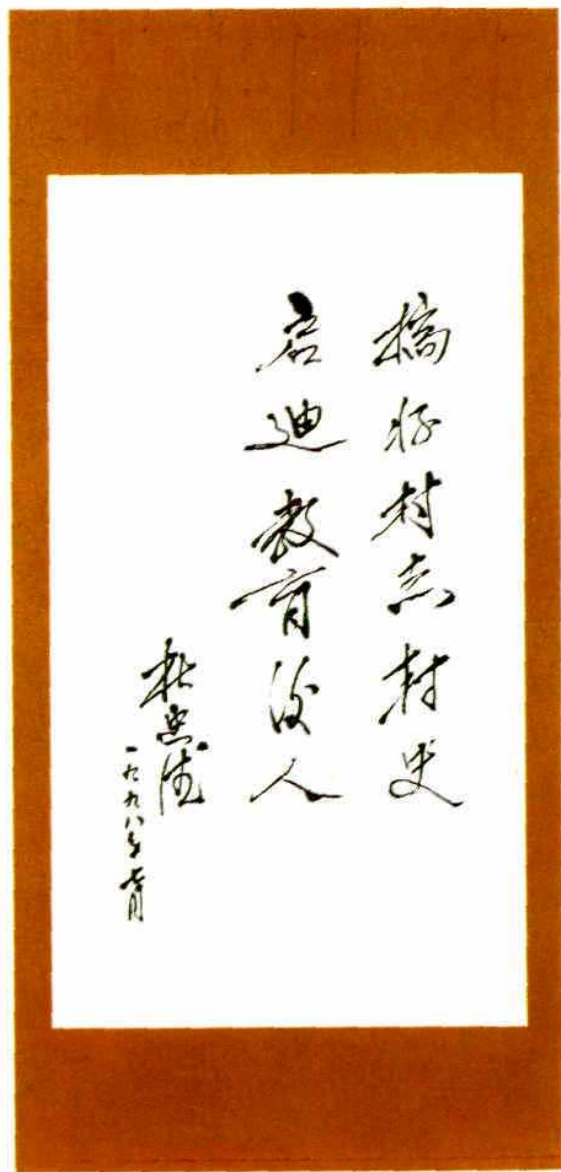 搞好村志村史
启迪教育后人
杜忠
一九九八年 月